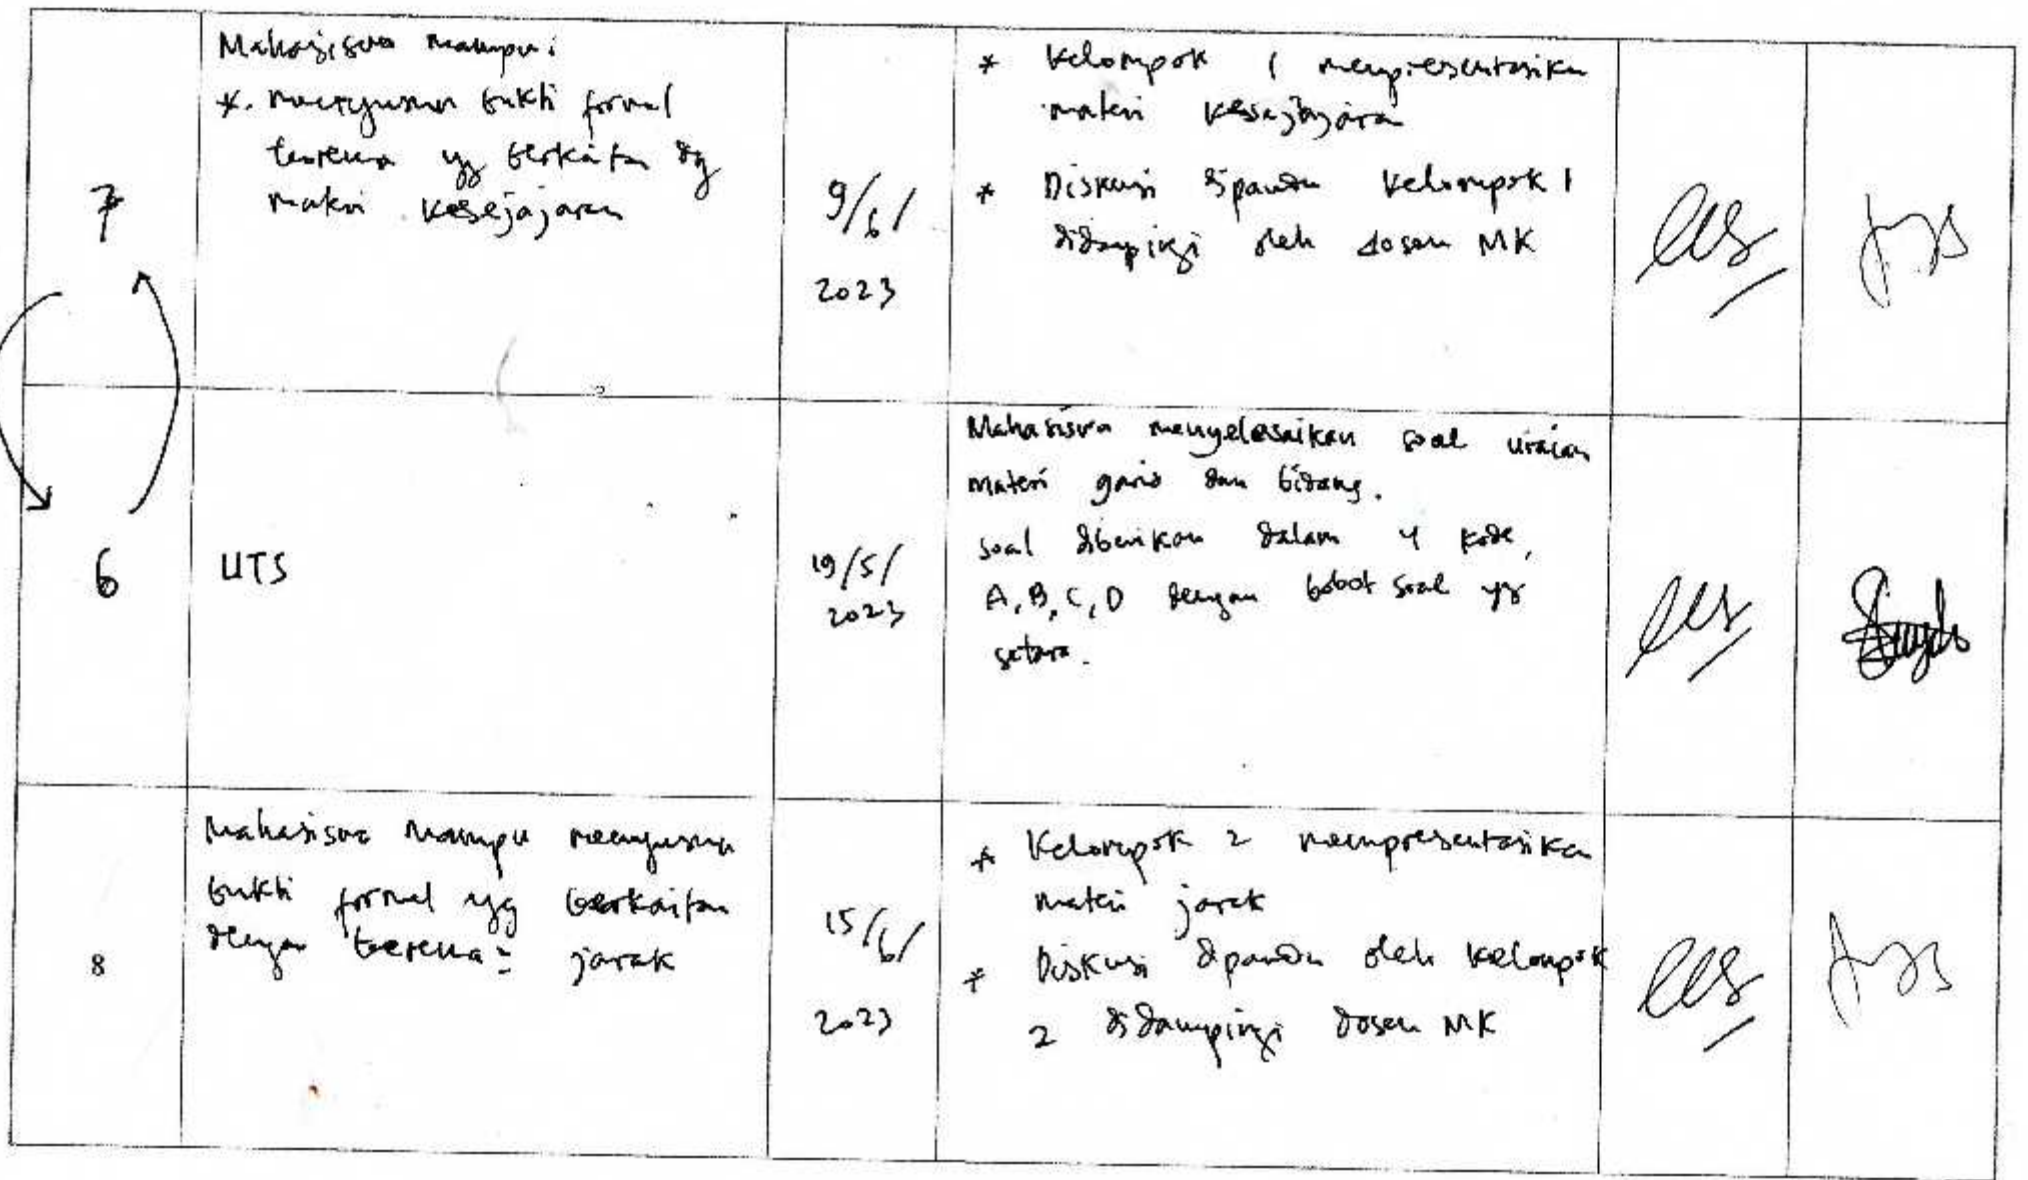 7
Mahasiswa mampu:
*. menyusun bukti formal
teorema yg berkaitan dg
materi kesejajaran
9/6/
2023
* Kelompok 1 mempresentasikan
materi kesejajaran
* Diskusi dipandu kelompok 1
didampingi oleh dosen MK
6
UTS
19/5/
2023
Mahasiswa menyelesaikan soal uraian
materi garis dan bidang.
soal diberikan dalam 4 kode,
A, B, C, D dengan bobot soal yg
setara.
8
Mahasiswa mampu menyusun
bukti formal yg berkaitan
dengan teorema: jarak
15/6/
2023
* Kelompok 2 mempresentasikan
materi jarak
* Diskusi dipandu oleh kelompok
2 didampingi dosen MK